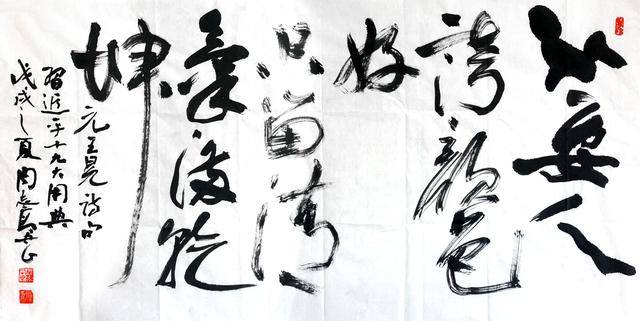 不要人
誇顔色
好
只留清
氣滿乾
坤
元王冕詩句
習近平十九大用典
戊戌之夏周